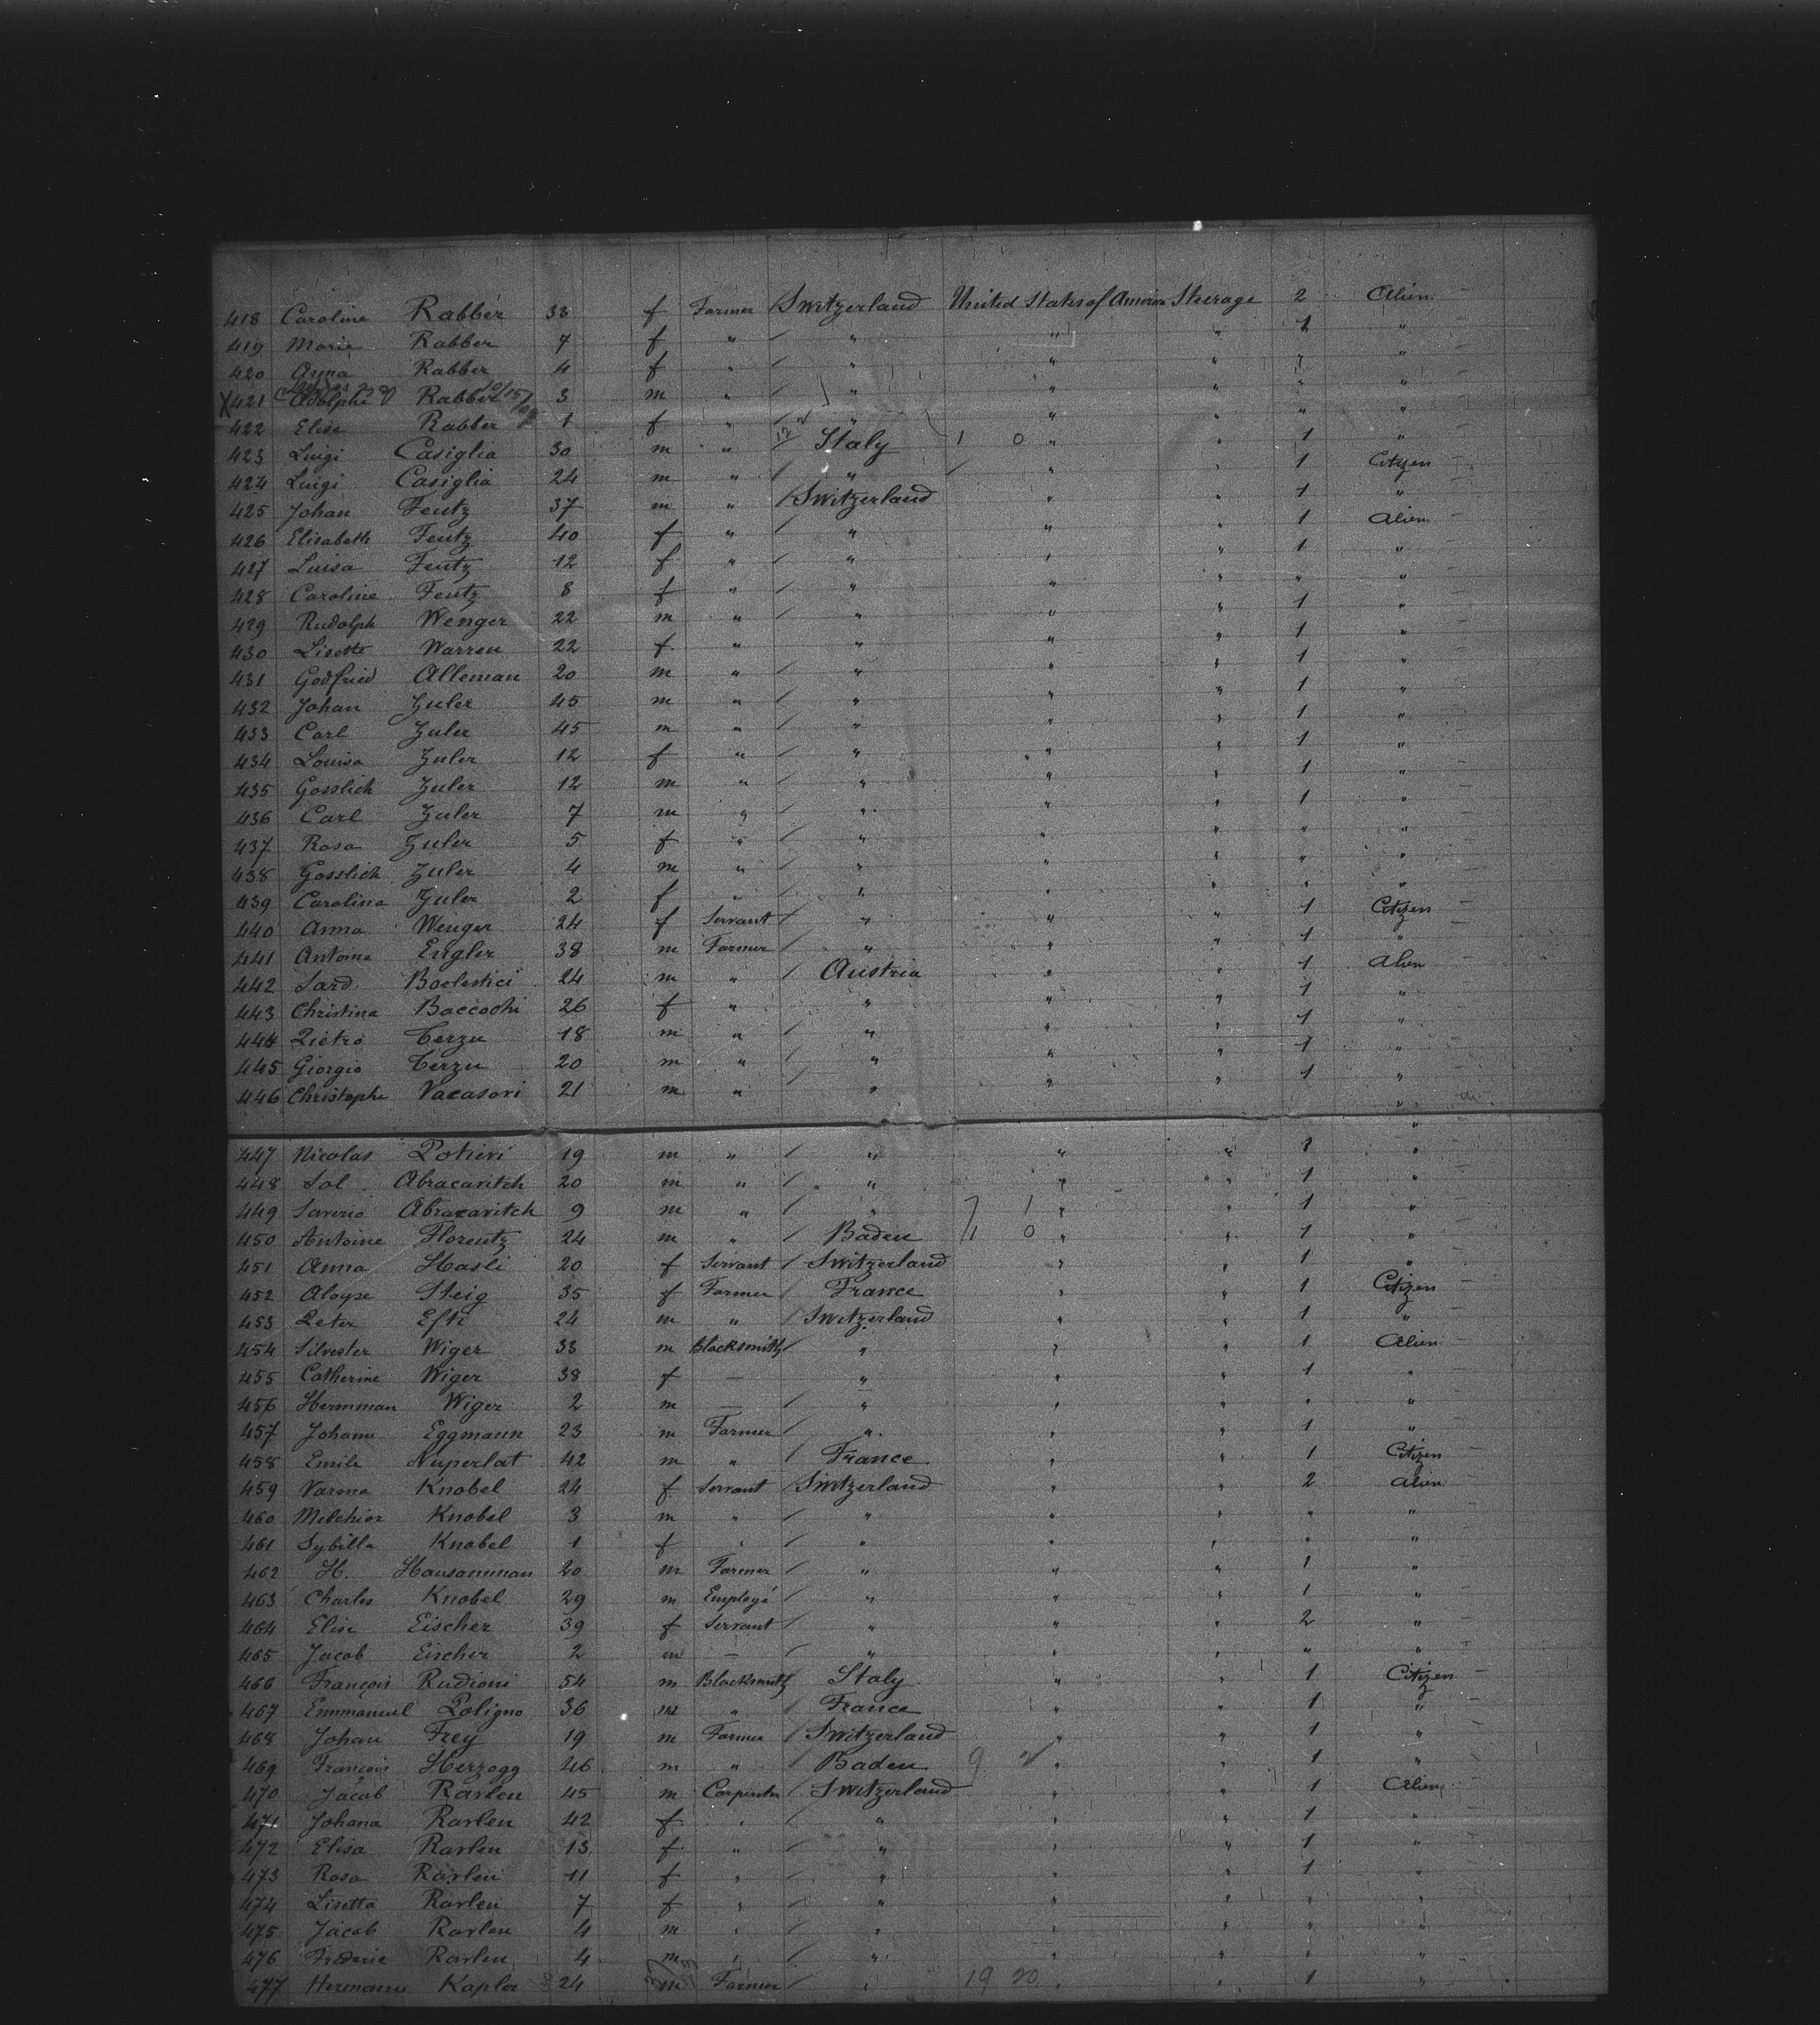 418 Caroline Rabber 33 f Farmer Switzerland United States of America Sterage 2 Alien
419 Marie Rabber 7 f " " " " 1 "
420 Anna Rabber 4 f " " " " "
X421 Adolphe Rabber 3 m " " " " " "
422 Elise Rabber 1 f " " " " " "
423 Luigi Casiglia 30 m " Italy 1 0 " " 1 "
424 Luigi Casiglia 24 m " " " " 1 Citizen
425 Johan Feutz 37 m " Switzerland " " 1 "
426 Elisabeth Feutz 40 f " " " " 1 Alien
427 Luisa Feutz 12 f " " " " 1 "
428 Caroline Feutz 8 f " " " " " "
429 Rudolph Wenger 22 m " " " " 1 "
430 Lisette Warren 22 f " " " " 1 "
431 Godfried Alleman 20 m " " " " 1 "
432 Johan Zuler 45 m " " " " 1 "
433 Carl Zuler 45 m " " " " 1 "
434 Louisa Zuler 12 f " " " " 1 "
435 Gosslich Zuler 12 m " " " " 1 "
436 Carl Zuler 7 m " " " " 1 "
437 Rosa Zuler 5 f " " " " " "
438 Gosslich Zuler 4 m " " " " " "
439 Carolina Zuler 2 f " " " " " "
440 Anna Wenger 24 f Servant " " " 1 Citizen
441 Antoine Engler 38 m Farmer " " " 1 "
442 Sard Boelestici 24 m " Austria " " 1 Alien
443 Christina Baccochi 26 f " " " " 1 "
444 Pietro Terzu 18 m " " " " 1 "
445 Giorgio Terzu 20 m " " " " 1 "
446 Christophe Vacasovi 21 m " " " " 1 "
447 Nicolas Potieri 19 m " " " " 1 "
448 Sol Abracavitch 20 m " " " " 1 "
449 Saverio Abracavitch 9 m " " 7 1 " " 1 "
450 Antoine Florentz 24 m " Baden 1 0 " " 1 "
451 Anna Hasli 20 f Servant Switzerland " " 1 "
452 Aloyse Steig 35 f Farmer France " " 1 Citizen
453 Peter Efti 24 m " Switzerland " " 1 "
454 Silvester Wiger 33 m Blacksmith " " " 1 Alien
455 Catherine Wiger 38 f — " " " 1 "
456 Hermman Wiger 2 m — " " " " "
457 Johann Eggmann 23 m Farmer " " " 1 "
458 Emile Nuperlat 42 m " France " " 1 Citizen
459 Varena Knobel 24 f Servant Switzerland " " 2 Alien
460 Melchior Knobel 3 m " " " " " "
461 Sybilla Knobel 1 f " " " " " "
462 H. Hausammann 20 m Farmer " " " 1 "
463 Charles Knobel 29 m Employé " " " 1 "
464 Elise Eischer 39 f Servant " " " 2 "
465 Jacob Eischer 2 m — " " " " "
466 François Rudioni 54 m Blacksmith Italy " " 1 Citizen
467 Emmanuel Poligno 36 m " France " " 1 "
468 Johan Frey 19 m Farmer Switzerland " " 1 "
469 François Herzogg 46 m " Baden 9 " " 1 "
470 Jacob Rarlen 45 m Carpenter Switzerland " " 1 Alien
471 Johana Rarlen 42 f " " " " 1 "
472 Elisa Rarlen 13 f " " " " 1 "
473 Rosa Rarlen 11 f " " " " 1 "
474 Lisetta Rarlen 7 f " " " " " "
475 Jacob Rarlen 4 m " " " " " "
476 Frederic Rarlen 4 m " " " " " "
477 Hermann Kapler 24 m Farmer " 19 20 " " 1 "